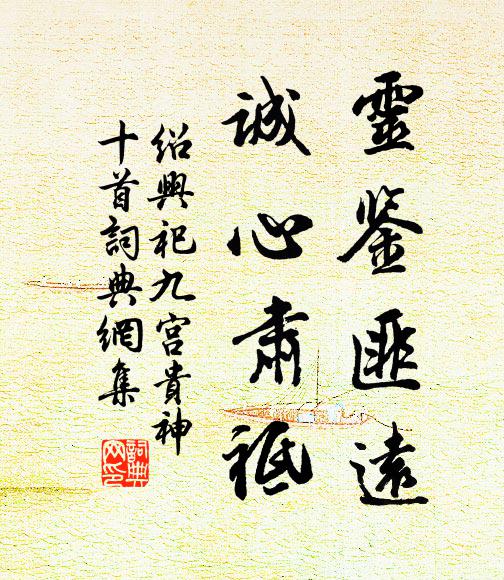 靈鑒匪遠
誠心肅祗
紹興祀九宮貴神
十首詞典網集
詞典
网印